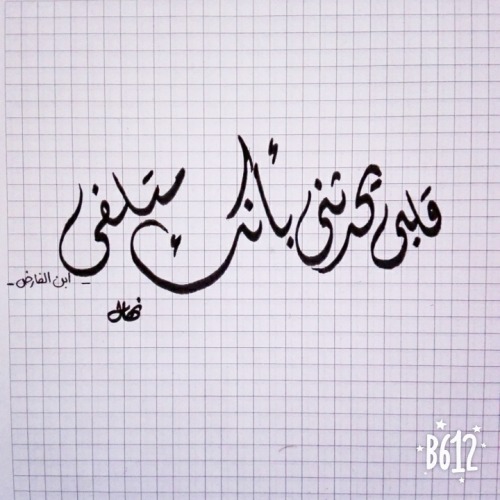 قلبى يحدثنى بأنك متلفى
- ابن الفارض -
نهال
B612